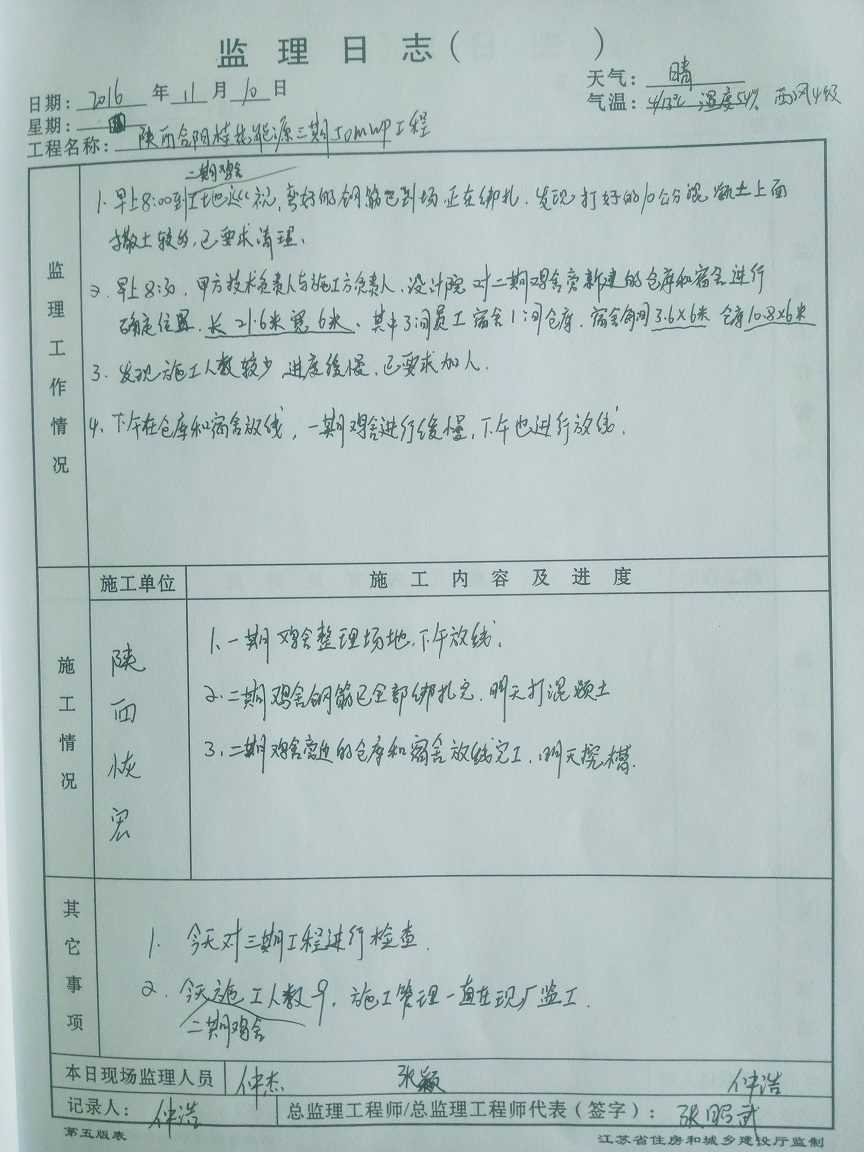 监理日志( )
日期: 2016 年 11 月 10 日
天气: 晴
星期: 四
气温: 4/13℃ 湿度54% 西风4级
工程名称: 陕西合阳桂花能源三期50MWP工程
监理工作情况
二期鸡舍
1. 早上8:00到工地巡视,弯好的钢筋已到场正在绑扎.发现打好的10公分混凝土上面
撒土较多,已要求清理.
2. 早上8:30,甲方技术负责人与施工方负责人、设计院对二期鸡舍旁新建的仓库和宿舍进行
确定位置.长21.6米宽6米、其中3间员工宿舍1间仓库.宿舍每间3.6×6米 仓库10.8×6米
3. 发现施工人数较少 进度缓慢,已要求加人.
4. 下午在仓库和宿舍放线,一期鸡舍进行缓慢,下午也进行放线.
施工情况
施工单位
施工内容及进度
陕西恢宏
1. 一期鸡舍整理场地,下午放线.
2. 二期鸡舍钢筋已全部绑扎完.明天打混凝土
3. 二期鸡舍旁边的仓库和宿舍放线完工.明天挖槽.
其它事项
1. 今天对三期工程进行检查.
2. 今天施工人数9,施工管理一直在现厂监工.
二期鸡舍
本日现场监理人员 仲杰 张颖 仲浩
记录人: 仲浩 总监理工程师/总监理工程师代表(签字): 张昭武
第五版表 江苏省住房和城乡建设厅监制